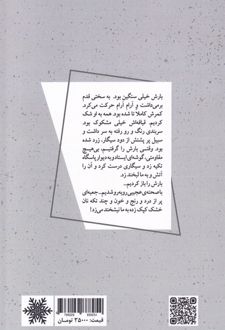 بارش خیلی سنگین بود. به سختی قدم
برمی‌داشت و آرام آرام حرکت می‌کرد.
کمرش کاملا تا شده بود. همه به او شک
کردیم. قیافه‌اش خیلی مشکوک بود.
سربندی رنگ و رو رفته به سر داشت و
سبیل پر پشتش از دود سیگار، زرد شده
بود. وقتی بارش را گرفتیم، بی‌هیچ
مقاومتی، گوشه‌ای ایستاد و به دیوار پاسگاه
تکیه زد و سیگاری درست کرد و آن را
آتش و به ما لبخند زد.
بارش را باز کردیم...
با صحنه‌ی عجیبی روبه‌رو شدیم... جعبه‌ای
پر از درد و رنج و خون و چند تکه نان
خشک کپک زده به ما نیشخند می‌زد!
قیمت: ۳۵۰۰۰ تومان